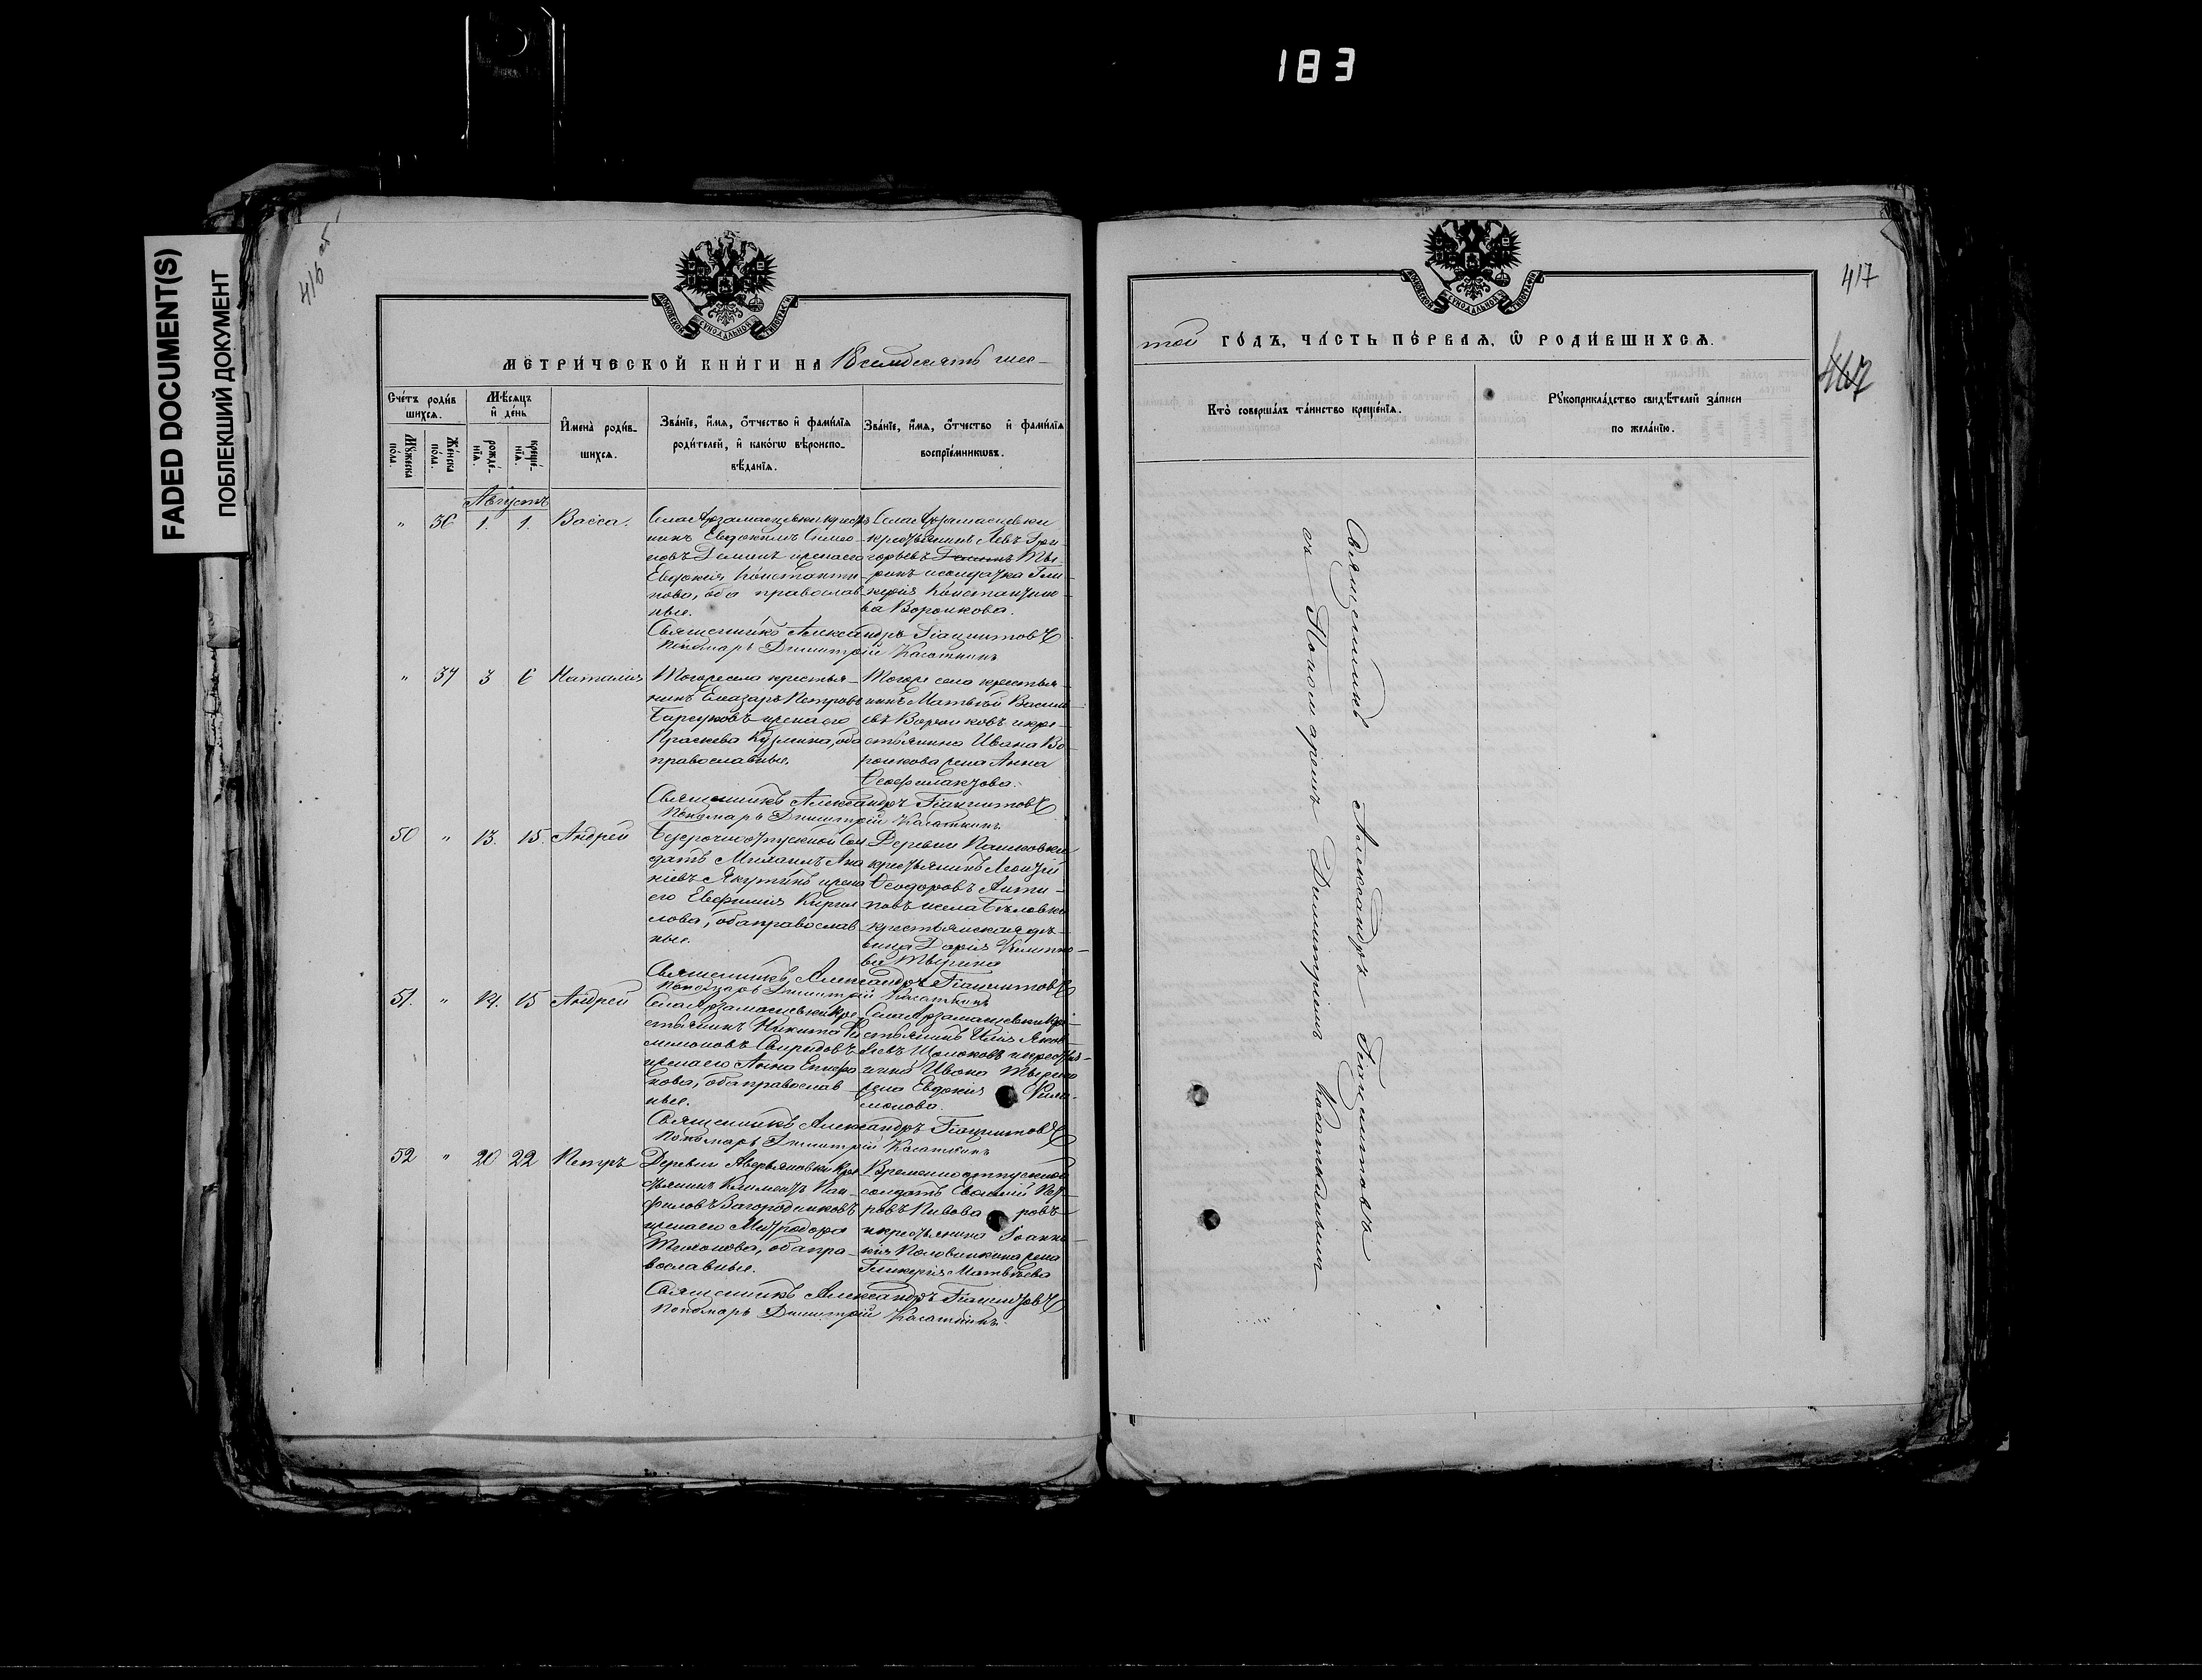 183
FADED DOCUMENT(S)
ПОБЛЕКШИЙ ДОКУМЕНТ
416 об
МЕТРИ́ЧЕСКОЙ КНИ́ГИ НА 18 семдесятъ шес-
Сче́тъ роди́в
шихсѧ.
Мѣ́сѧцъ
и҆ де́нь
И҆мена̀ роди́в-
шихсѧ.
Зва́нїе, и҆́мѧ, ѻ҆́тчество и҆ фами́лїѧ
роди́телей, и҆ како́гѡ вѣроиспо-
вѣ́данїѧ.
Зва́нїе, и҆́мѧ, ѻ҆́тчество и҆ фами́лїѧ
воспрїе́мникѡвъ.
Мꙋ́жеска
по́ла.
Же́нска
по́ла.
рожде́-
нїѧ.
креще́-
нїѧ.
Августъ
" 36 1. 1. Васса.
Села Арзамасцевки кресть
нинъ Евдокимъ Симео-
новъ Деминъ и жена его
Евдокія Константи-
нова, оба православ-
ные.
Села Арзамасцевки
крестьянинъ Левъ Гри-
горьевъ Деминъ Ты-
ринъ и солдатка Гли-
керія Константино-
ва Воронкова.
Священникъ Александръ Гіацинтовъ
Пономарь Димитрій Касаткинъ
" 37 3 6 Наталія
Тогоже села крестья-
нинъ Елазаръ Петровъ
Барсуковъ и жена его
Праскева Кузмина, оба
православные.
Тогоже села крестья-
нинъ Матвѣй Василь-
евъ Воронковъ и кре-
стьянина Ивана Во-
ронкова жена Анна
Ѳеофилактова.
Священникъ Александръ Гіацинтовъ
Пономарь Димитрій Касаткинъ
50 " 13. 15. Андрей
Безсрочноотпускной сол
датъ Михаилъ Ана
ніевъ Якутинъ и жена
его Евфимія Кирил
лова, оба православ-
ные.
Деревни Пашковки
крестьянинъ Леонтій
Ѳеодоровъ Анти-
повъ и села Бѣловки
крестьянская дѣ-
вица Дарія
ва Тырина
Священникъ Александръ Гіацинтовъ
Пономарь Димитрій Касаткинъ
51. " 14. 15 Андрей
Села Арзамасцевки кре
стьянинъ Никита Фи
лимоновъ Свиридовъ
и жена его Анна Епифа
нова, оба православ-
ные.
Села Арзамасцевки кре-
стьянинъ Илія Яков-
левъ Щолоковъ и крестья-
нина Ивана Тырина
жена Евдокія Фили-
монова.
Священникъ Александръ Гіацинтовъ
Пономарь Димитрій Касаткинъ
52 " 20 22 Петръ
Деревни Аверьяновки кре
стьянинъ Климентъ Пан-
филовъ Загородниковъ
и жена его Митродора
Тихонова, оба пра-
вославные.
Временноотпускной
солдатъ Евѳимій Пет-
ровъ Пивоваровъ
и крестьянина Іоанни-
кія Половинкина жена
Гликерія Матвѣева
Священникъ Александръ Гіацинтовъ
Пономарь Димитрій Касаткинъ
417
417
той ГО́ДЪ, ЧА́СТЬ ПЕ́РВАѦ, Ѡ҆ РОДИ́ВШИХСѦ.
Кто̀ соверша́лъ та́инство креще́нїѧ.
Рꙋкоприкла́дство свидѣ́телей за́писи
по жела́нїю.
Священникъ Александръ Гіацинтовъ
съ Пономаремъ Димитріемъ Касаткинымъ